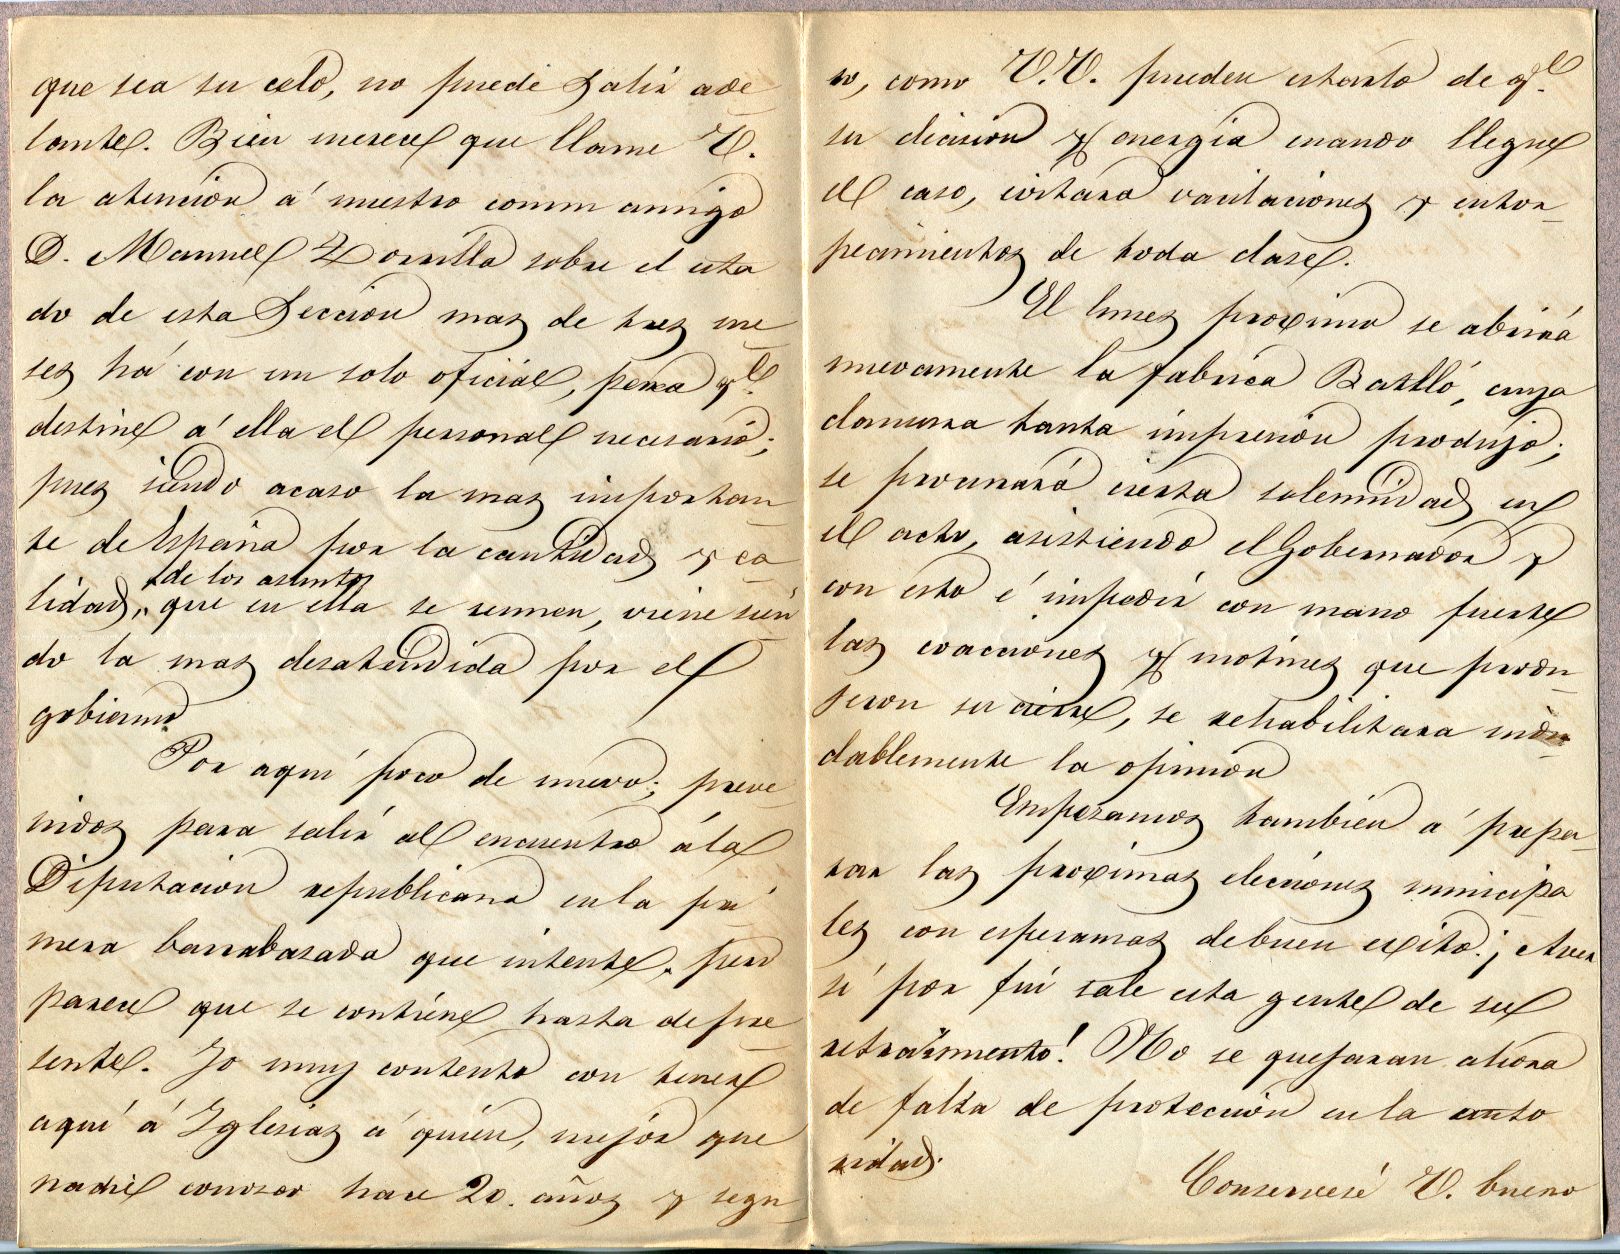 que sea su celo, no puede salir ade
lante. Bien merece que llame V.
la atencion á nuestro comun amigo
D. Manuel Zorrilla sobre el esta
do de esta Seccion mas de tres me
ses há con un solo oficial, para q.e
destine á ella el personal necesario;
pues siendo acaso la mas importan
te de España por la cantidad y ca
lidad, de los asuntos que en ella se reunen, viene sien
do la mas desatendida por el
gobierno.
Por aqui poco de nuevo; preve
nidos para salir al encuentro á la
Diputacion republicana en la pri
mera barrabasada que intente, pero
parece que se contiene hasta de pre
sente. Yo muy contento con tener
aqui á Iglesias á quien, mejor que
nadie conozco hace 20. años y segu
ro, como V.V. pueden estarlo de q.e
su decision y energia cuando llegue
el caso, cortará vacilaciones y entor
pecimientos de toda clase.
El lunes proximo se abrirá
nuevamente la fabrica Batlló, cuya
clausura tanta impresion produjo;
se procurará cierta solemnidad en
el acto, asistiendo el Gobernador y
con esto é impedir con mano fuerte
las coacciones y motines que produ
jeron su cierre, se rehabilitara indu
dablemente la opinion
Empezamos tambien á prepa
rar las proximas elecciones municipa
les con esperanzas de buen exito.¡ A ver
si por fin sale esta gente de su
retraimiento! No se quejaran ahora
de falta de proteccion en la auto
ridad.
Conservesé V. bueno